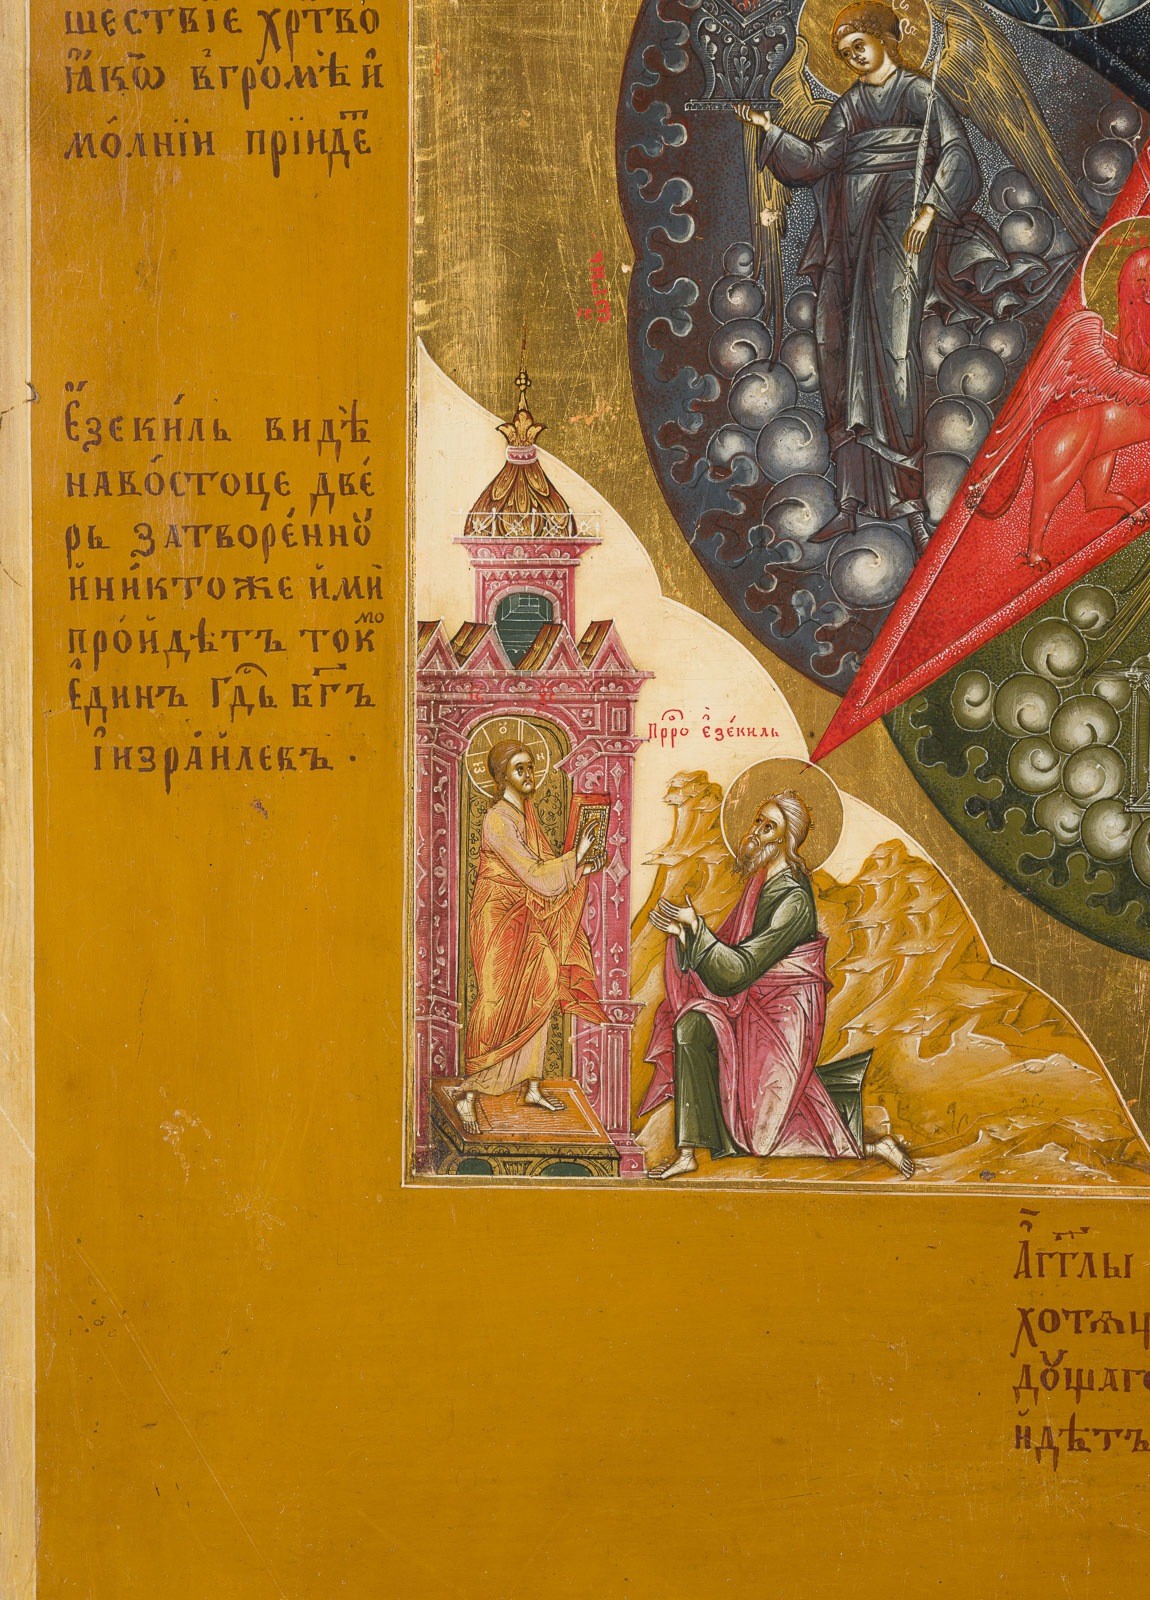 шествїе хр҇тво
ꙗ҆́кѡ в̾громѣ и҆
мо́лнїи прїидє҇
є҆зеки́ль видѣ̀
наво́стоце две́
рь затворе́ннꙋ
и҆ни́ктоже и҆мѝ
про́йдѣтъ токмо
є҆ди́нъ гд҇ь бг҃ъ
і҆изра́илевъ .
Прⷪ҇ро є҆зе́киль
о н
а҆́гг҃лы
хотѧщ
дꙋшаго
и҆дѣтъ